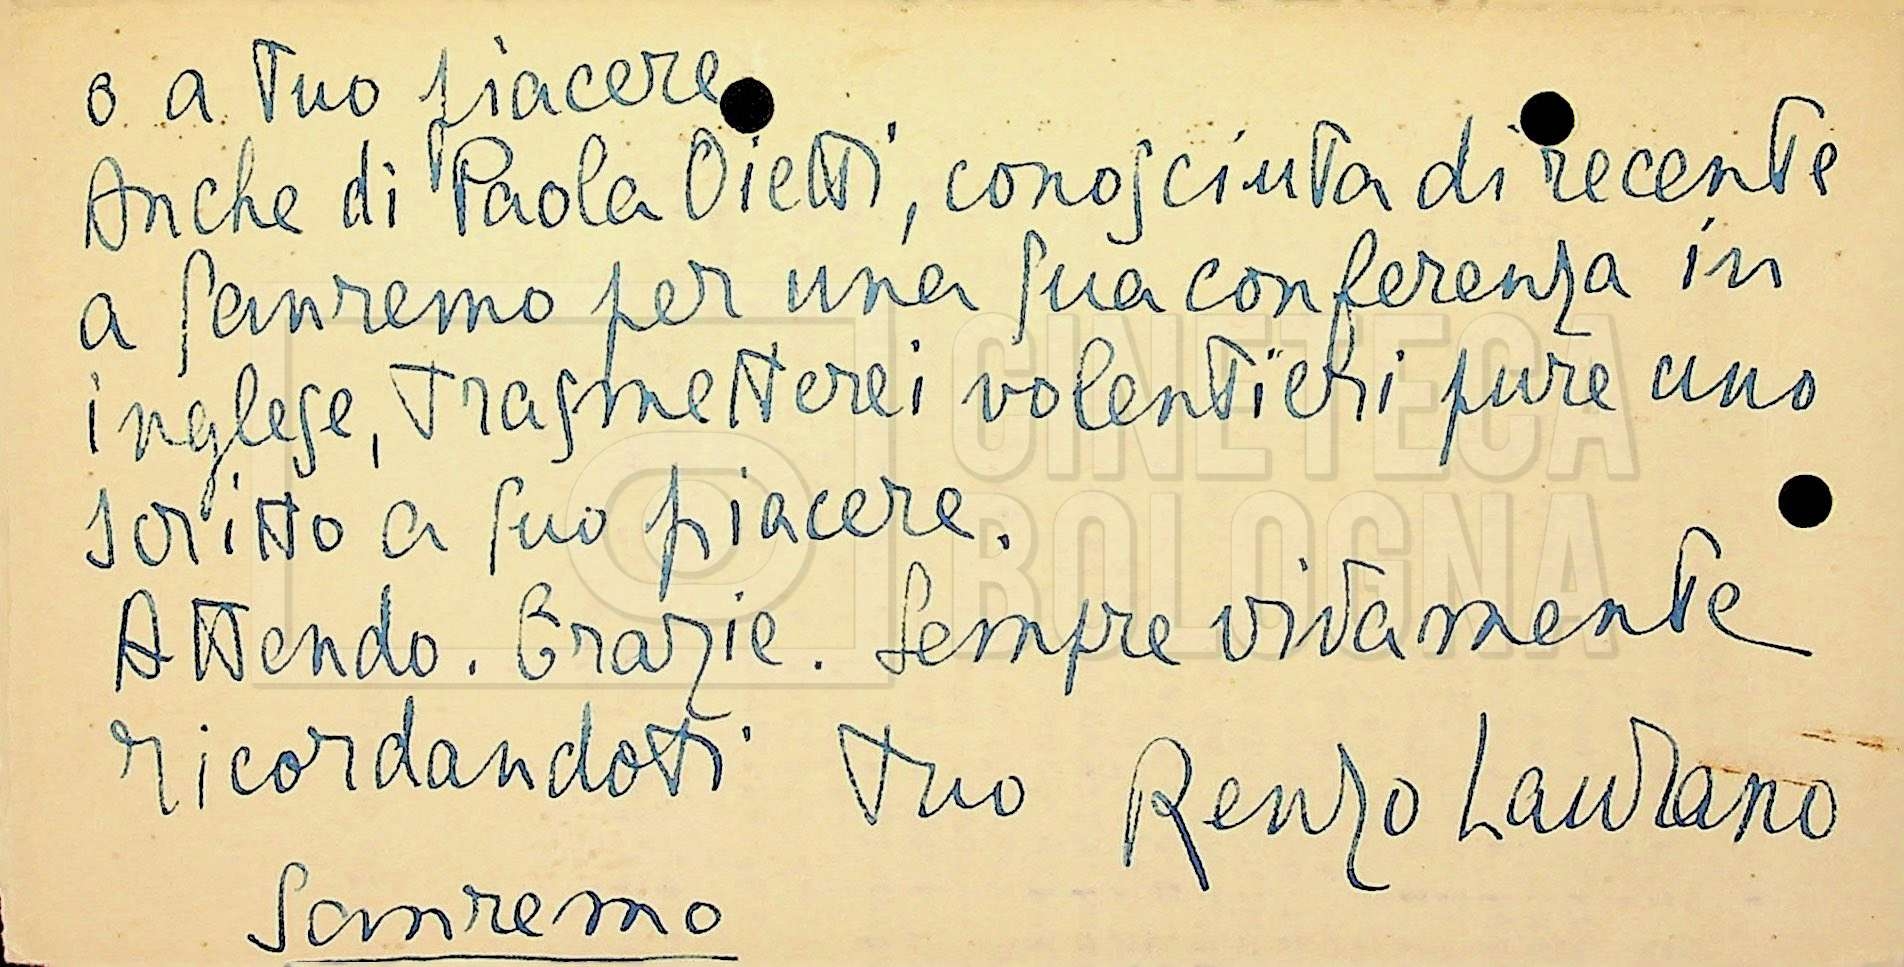 o a tuo piacere.
Anche di Paola Oietti, conosciuta di recente
a Sanremo per una sua conferenza in
inglese, trasmetterei volentieri pure uno
scritto a suo piacere.
Attendo. Grazie. Sempre vivamente
ricordandoti tuo Renzo Laurano
Sanremo
CINETECA
BOLOGNA